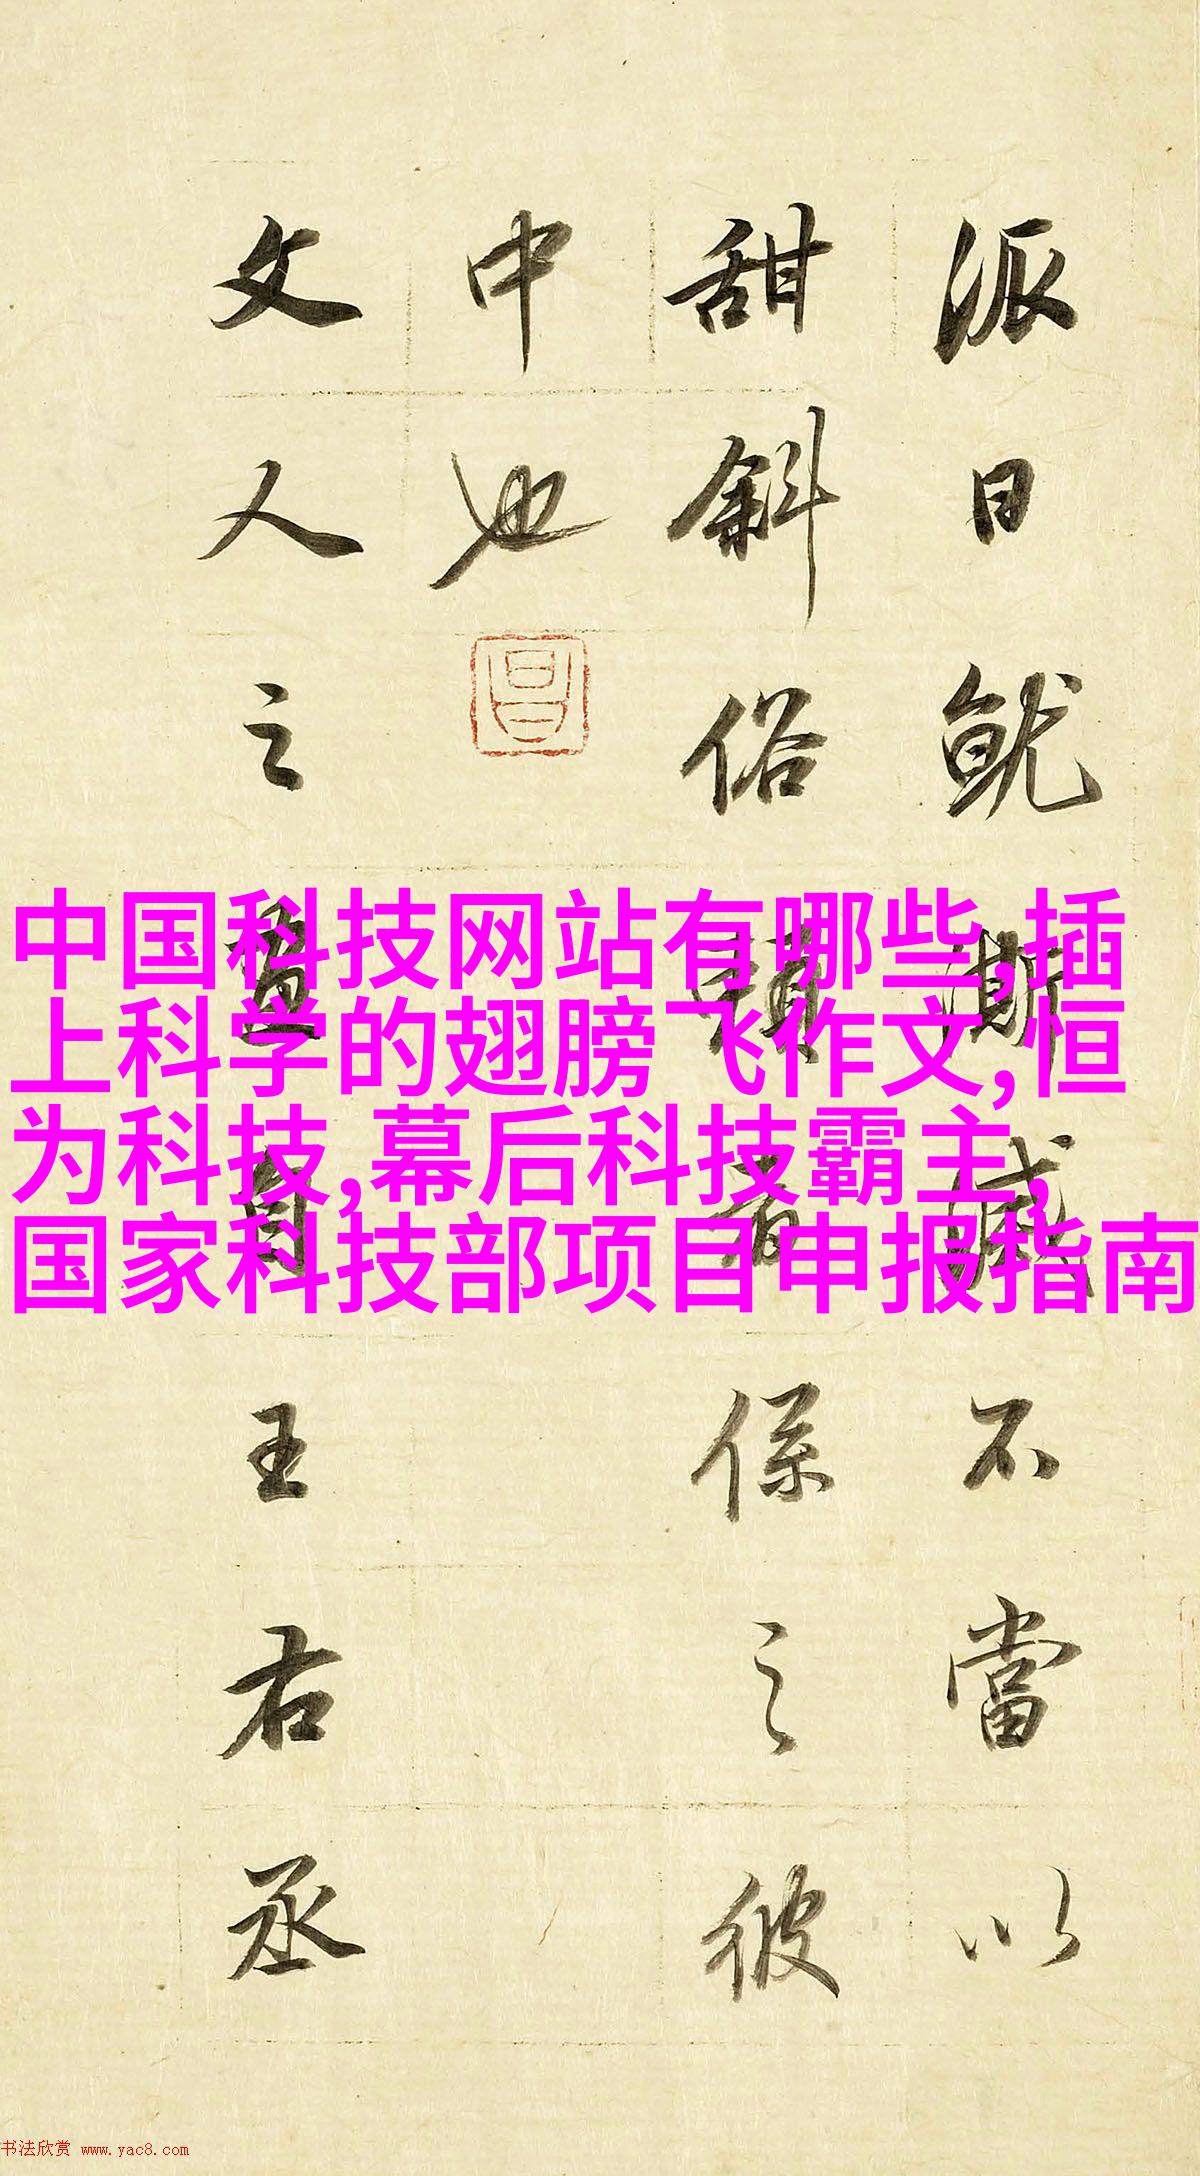 派日就澌滅不當以
甜斜俗賴者係之彼
中也
昌
文人之畫自王右丞
中国科技网站有哪些,插
上科学的翅膀飞作文,恒
为科技,幕后科技霸主,
国家科技部项目申报指南
书法欣赏 www.yac8.com